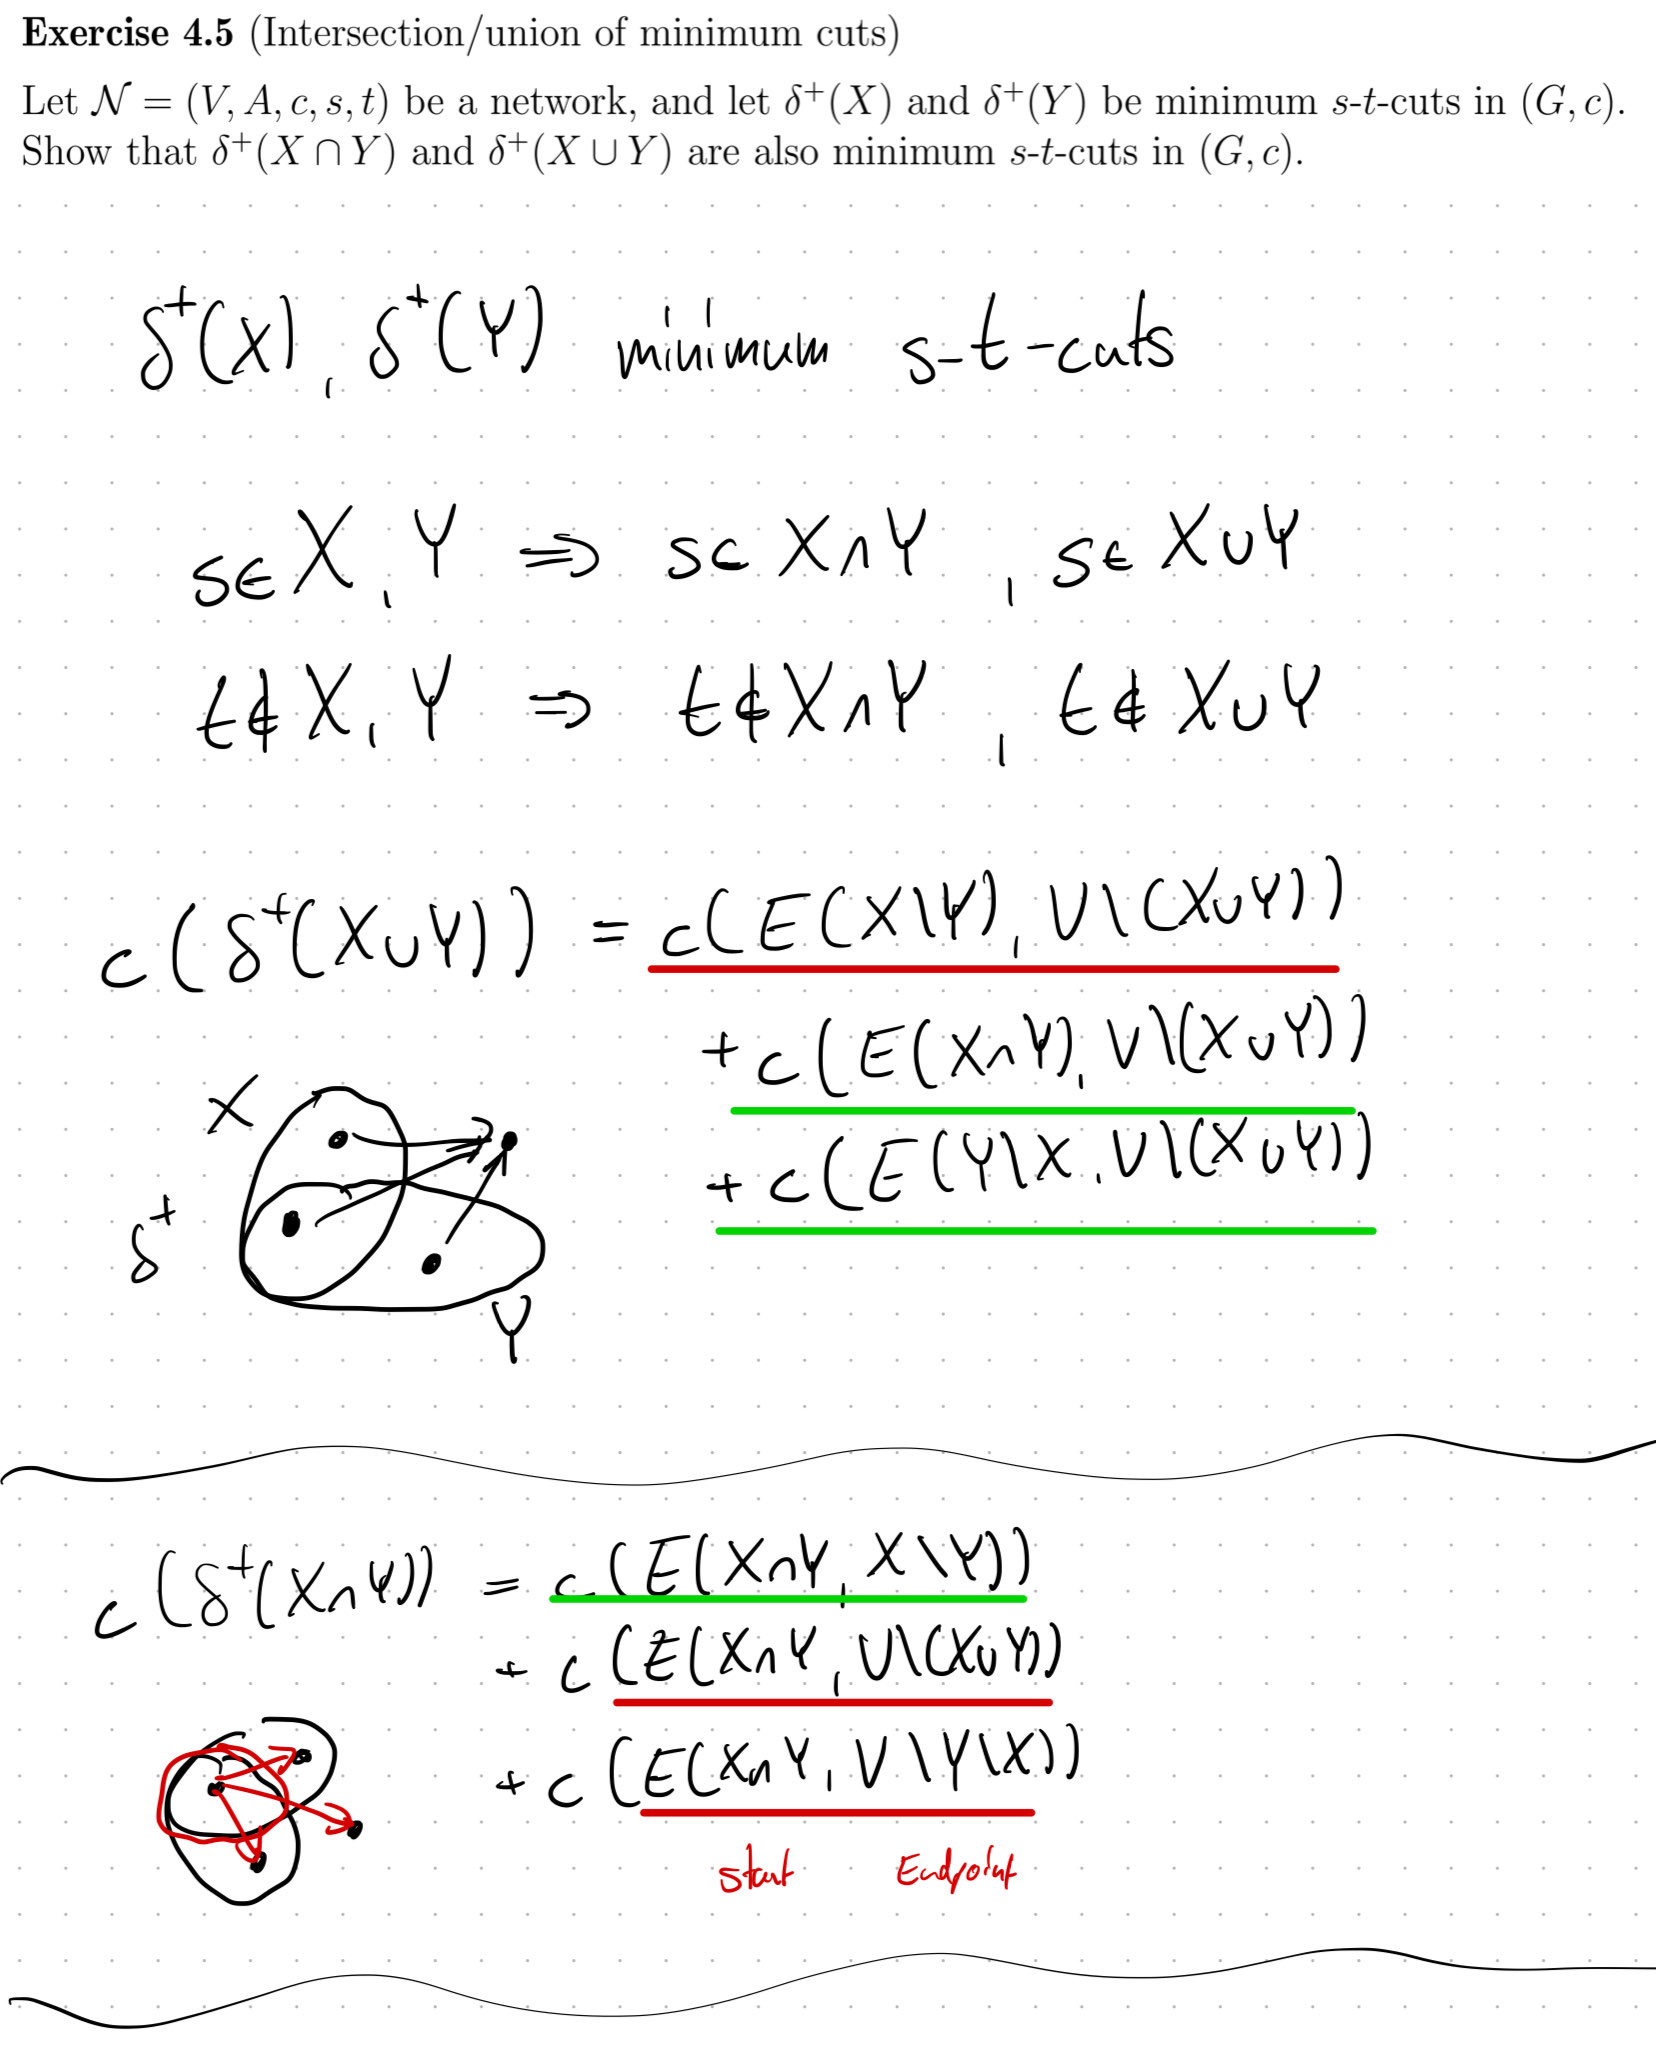 Exercise 4.5 (Intersection/union of minimum cuts)
Let 𝒩 = (V, A, c, s, t) be a network, and let δ⁺(X) and δ⁺(Y) be minimum s-t-cuts in (G, c).
Show that δ⁺(X ∩ Y) and δ⁺(X ∪ Y) are also minimum s-t-cuts in (G, c).
δ⁺(X), δ⁺(Y) minimum s-t-cuts
s∈ X, Y ⇒ s∈ X∩Y, s∈ X∪Y
t∉ X, Y ⇒ t∉ X∩Y, t∉ X∪Y
c(δ⁺(X∪Y)) = c(E(X\Y), V\(X∪Y))
+ c(E(X∩Y), V\(X∪Y))
X
+ c(E(Y\X, V\(X∪Y))
δ⁺
Y
c(δ⁺(X∩Y)) = c(E(X∩Y, X\Y))
+ c(E(X∩Y, V\(X∪Y))
+ c(E(X∩Y, V\Y\X))
start Endpoint